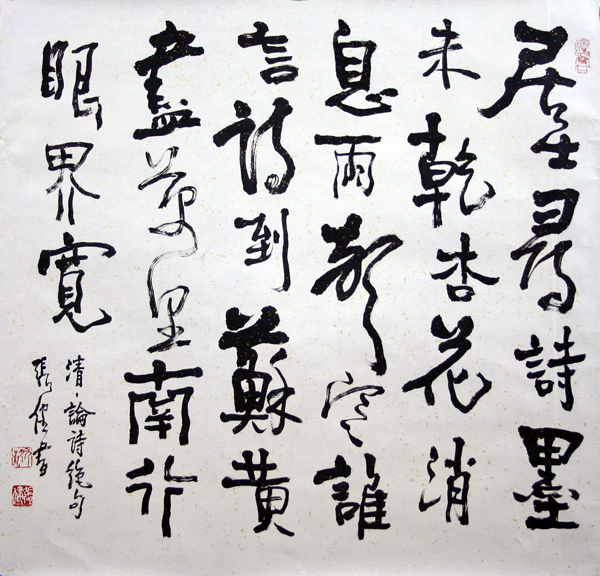 居士尋詩墨
未乾杏花消
息雨聲寒誰
言詩到蘇黃
盡萬里南行
眼界寬
清·論詩絕句
張書